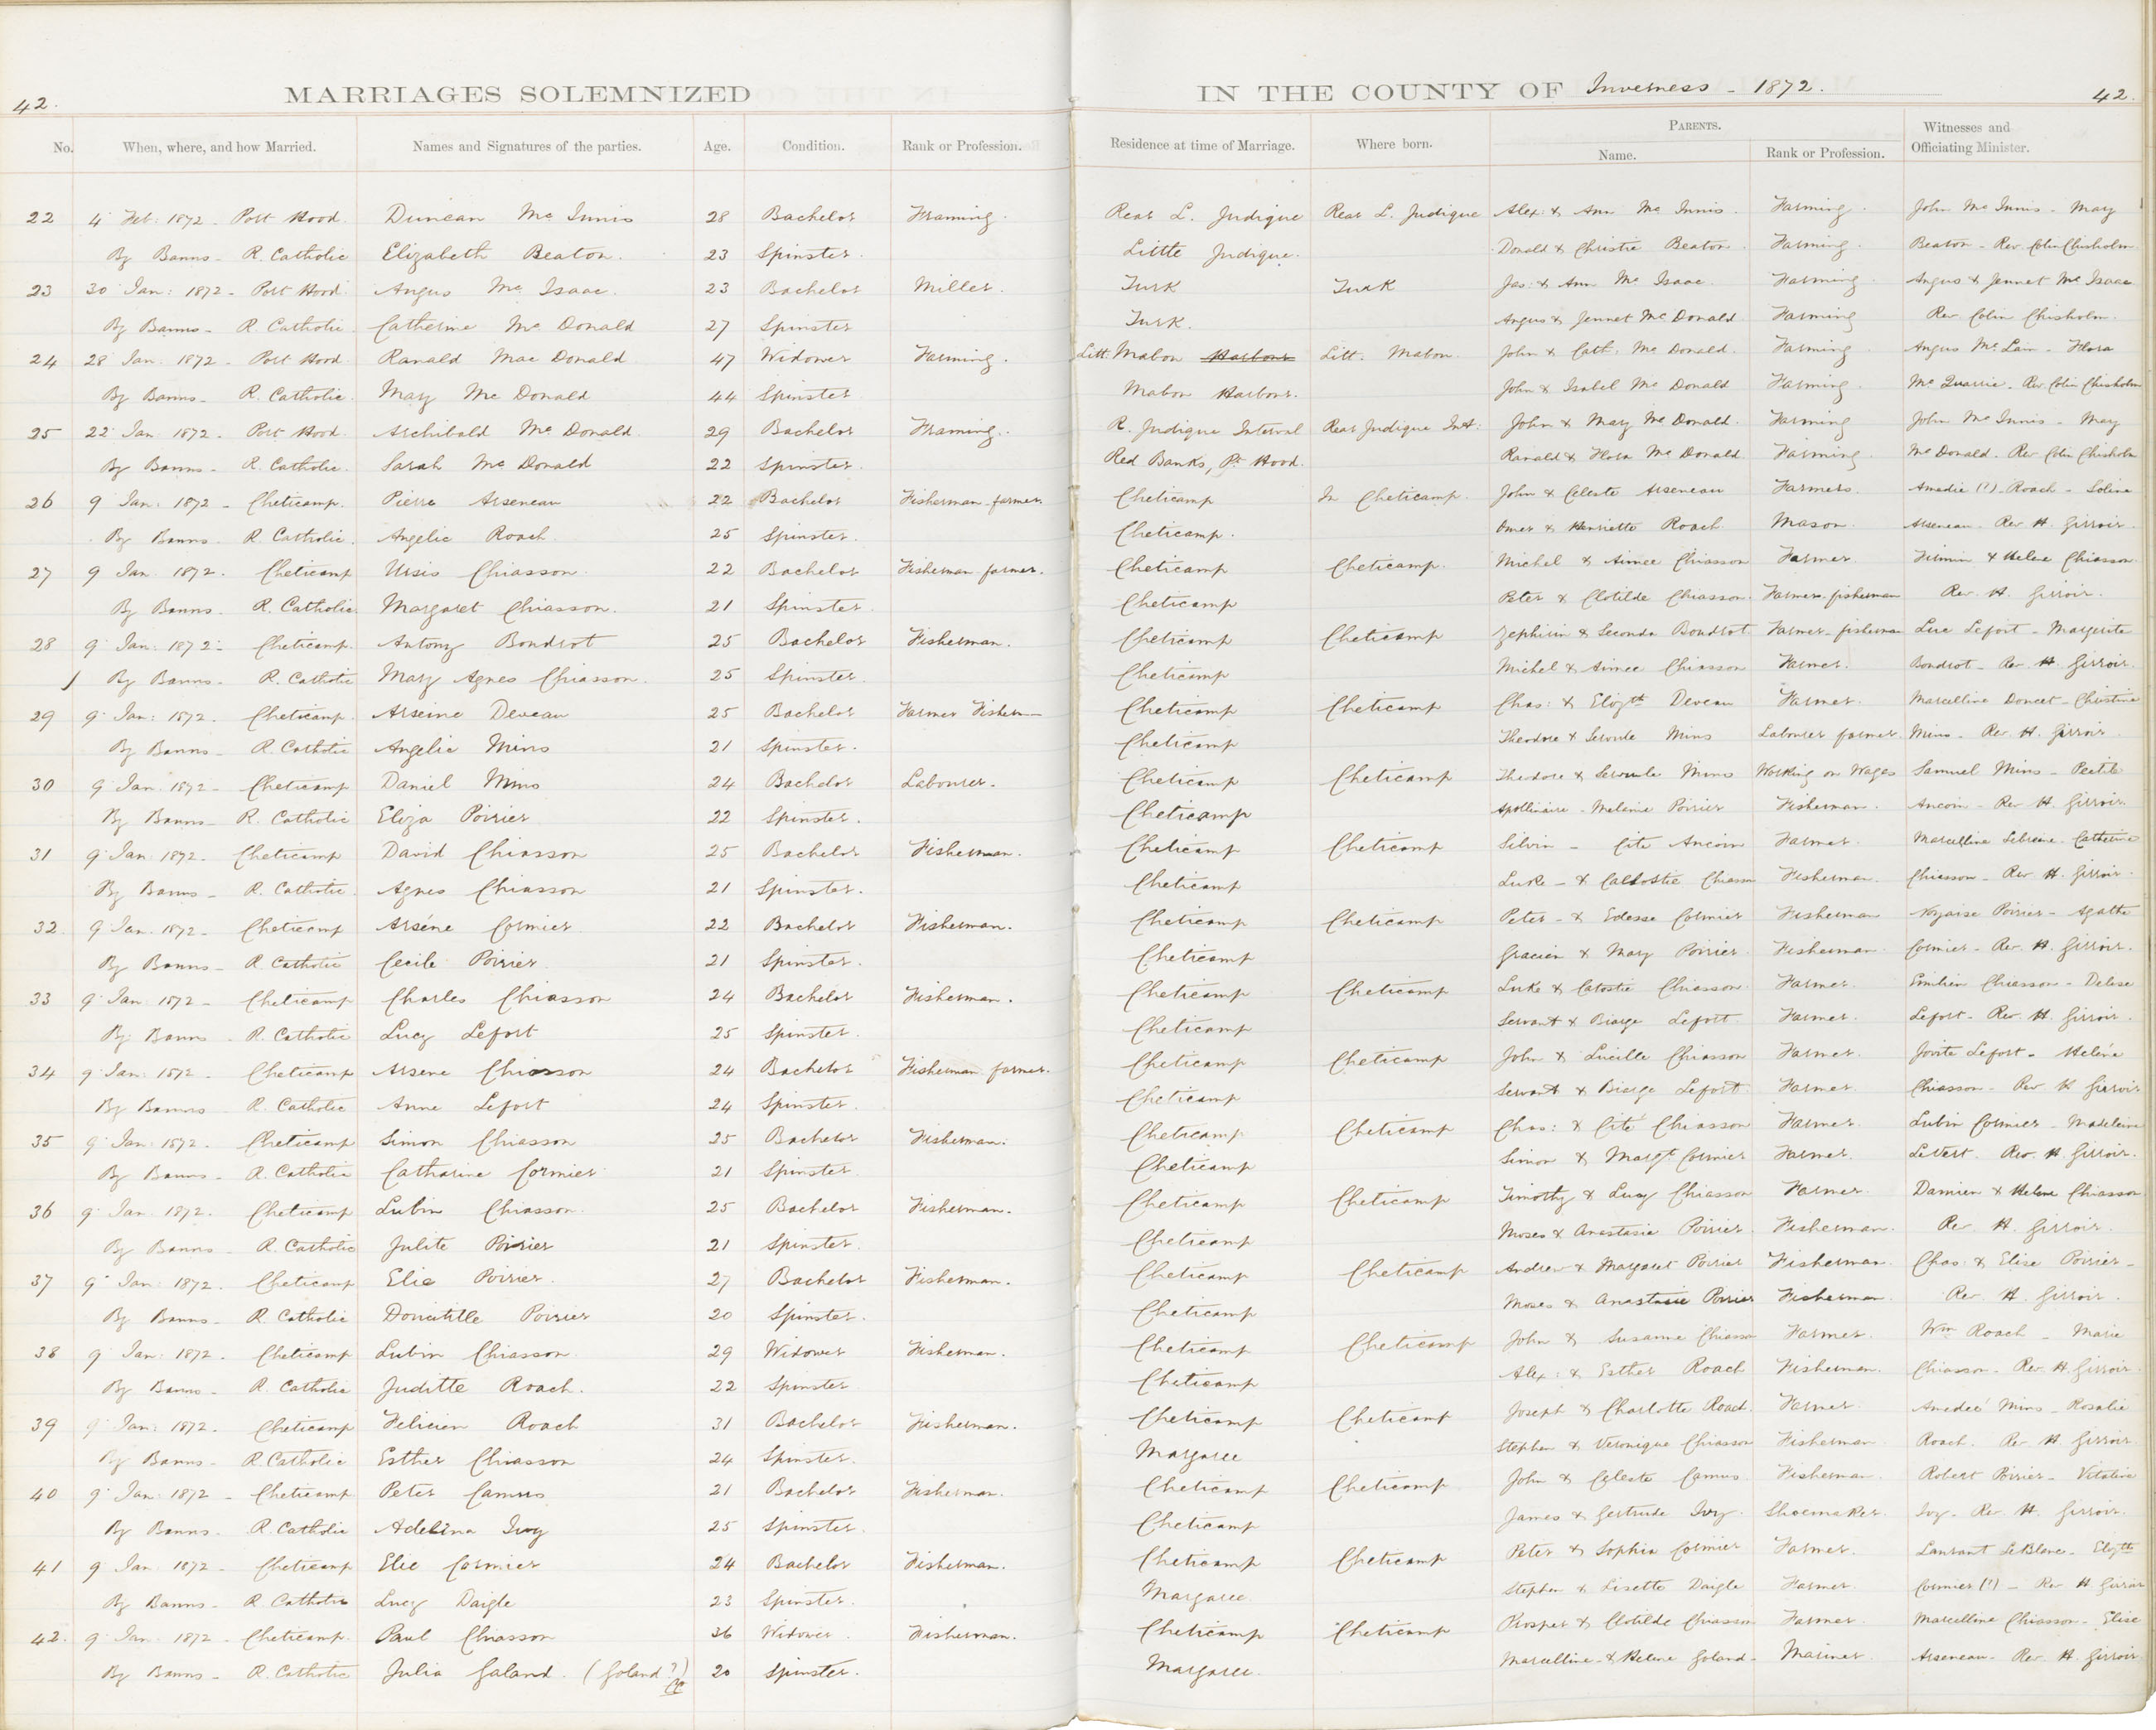 42. MARRIAGES SOLEMNIZED IN THE COUNTY OF Inverness - 1872. 42.
No. When, where, and how Married. Names and Signatures of the parties. Age. Condition. Rank or Profession. Residence at time of Marriage. Where born. PARENTS. Name. Rank or Profession. Witnesses and Officiating Minister.
22 4 Feb: 1872 - Port Hood. Duncan Mc Innis 28 Bachelor Framing. Rear L. Judique Rear L. Judique Alex: & Ann Mc Innis. Farming. John Mc Innis - Mary
By Banns - R. Catholic Elizabeth Beaton. 23 Spinster. Little Judique. Donald & Christie Beaton. Farming. Beaton - Rev. Colin Chisholm
23 30 Jan: 1872 - Port Hood. Angus Mc Isaac. 23 Bachelor Miller. Turk Turk Jas: & Ann Mc Isaac. Farming Angus & Jennet Mc Isaac
By Banns - R. Catholic. Catherine Mc Donald 27 Spinster Turk. Angus & Jennet Mc Donald Farming Rev Colin Chisholm.
24 28 Jan. 1872 - Port Hood. Ranald Mac Donald. 47 Widower Farming. Litt: Mabou Harbour Litt. Mabou John & Cath: Mc Donald. Farming Angus Mc Lain - Flora
By Banns - R. Catholic. Mary Mc Donald 44 Spinster Mabou Harbour. John & Isabel Mc Donald Farming. Mc Quarrie - Rev. Colin Chisholm
25 22 Jan 1872. Port Hood. Archibald Mc Donald. 29 Bachelor Framing. R. Judique Interval Rear Judique Int: John & Mary Mc Donald. Farming John Mc Innis - Mary
By Banns - R. Catholic. Sarah Mc Donald 22 Spinster. Red Banks, Pt Hood. Ranald & Flora Mc Donald Farming. Mc Donald. Rev Colin Chisholm
26 9 Jan: 1872 - Cheticamp. Pierre Arseneau 22 Bachelor Fisherman farmer. Cheticamp In Cheticamp. John & Celeste Arseneau Farmers. Amedie (?) - Roach - Soline
By Banns. R. Catholic. Angelic Roach 25 Spinster. Cheticamp. Omer & Henriette Roach Mason. Arseneau. Rev H. Girroir.
27 9 Jan. 1872. Cheticamp Ursis Chiasson 22 Bachelor Fisherman farmer. Cheticamp Cheticamp. Michel & Aimee Chiasson Farmer. Firmin & Helene Chiasson
By Banns. R. Catholic Margaret Chiasson. 21 Spinster. Cheticamp Peter & Clotilde Chiasson. Farmer. fisherman Rev. H. Girroir.
28 9 Jan: 1872. Cheticamp. Antony Bondrot 25 Bachelor Fisherman. Cheticamp Cheticamp Zephirin & Seconda Bondrot Farmer - fisherman Luc Lefort - Margerite
By Banns. R. Catholic Mary Agnes Chiasson. 25 Spinster. Cheticamp Michel & Aimee Chiasson Farmer. Bondrot - Rev H. Girroir.
29 9 Jan: 1872. Cheticamp. Arseine Deveau 25 Bachelor Farmer Fisherm Cheticamp Cheticamp Chas: & Elizth Deveau Farmer. Marcelline Doucet - Christine
By Banns - R. Catholic Angelic Mins 21 Spinster. Cheticamp Theodore & Mins Labourer farmer. Mins - Rev. H. Girroir.
30 9 Jan. 1872 - Cheticamp Daniel Mins 24 Bachelor Labourer. Cheticamp Cheticamp Theodore & Mins Working on Wages Samuel Mins -
By Banns - R. Catholic Eliza Poirier 22 Spinster. Cheticamp Apollinaire - Melanie Poirier Fisherman. Ancoin - Rev H. Girroir
31 9 Jan: 1872. Cheticamp David Chiasson 25 Bachelor Fisherman. Cheticamp Cheticamp Silvin - Cite Ancoin Farmer. Marcelline Lebrune. Catherine
By Banns - R. Catholic. Agnes Chiasson 21 Spinster. Cheticamp Luke - & Chiasson Fisherman. Chiasson - Rev H. Girroir.
32. 9 Jan. 1872 - Cheticamp Arséne Cormier. 22 Bachelor Fisherman. Cheticamp Cheticamp Peter - & Edesse Cormier Fisherman Poirier - Agathe
By Banns - R. Catholic Cecile Poirier 21 Spinster. Cheticamp Gracien & Mary Poirier Fisherman. Cormier - Rev. H. Girroir.
33 9 Jan 1872 - Cheticamp Charles Chiasson 24 Bachelor Fisherman. Cheticamp Cheticamp Luke & Chiasson Farmer. Emilien Chiasson - Delese
By Banns - R. Catholic Lucy Lefort 25 Spinster. Cheticamp Servant & Biarge Lefort Farmer. Lefort - Rev. H. Girroir.
34 9 Jan: 1872 - Cheticamp Arsene Chiasson 24 Bachelor Fisherman farmer. Cheticamp Cheticamp John & Lucille Chiasson Farmer. Jovite Lefort - Heléne
By Banns - R. Catholic Anne Lefort 24 Spinster. Cheticamp Servant & Biarge Lefort Farmer. Chiasson - Rev H Girroir
35 9 Jan: 1872. Cheticamp Simon Chiasson 25 Bachelor Fisherman. Cheticamp Cheticamp Chas: & Cité Chiasson Farmer. Lubin Cormier - Madeleine
By Banns - R. Catholic Catharine Cormier 21 Spinster Cheticamp Simon & Margt Cormier Farmer. Rev. H. Girroir.
36 9 Jan 1872. Cheticamp Lubin Chiasson. 25 Bachelor Fisherman. Cheticamp Cheticamp Timothy & Lucy Chiasson Farmer. Damien & Helene Chiasson
By Banns - R. Catholic Julite Poirier 21 Spinster. Cheticamp Moses & Anastasie Poirier. Fisherman. Rev. H. Girroir.
37 9 Jan: 1872. Cheticamp Elie Poirier. 27 Bachelor Fisherman. Cheticamp Cheticamp Andrew & Margaret Poirier Fisherman. Chas: & Elise Poirier -
By Banns - R. Catholic Poirier 20 Spinster. Cheticamp Moses & Anastasie Poirier Fisherman. Rev H. Girroir.
38 9 Jan: 1872. Cheticamp Lubin Chiasson. 29 Widower Fisherman. Cheticamp Cheticamp John & Susanne Chiasson Farmer. Wm Roach - Marie
By Banns - R. Catholic Juditte Roach. 22 Spinster Cheticamp Alex: & Esther Roach Fisherman. Chiasson - Rev. H. Girroir
39 9 Jan: 1872. Cheticamp Felicien Roach 31 Bachelor Fisherman. Cheticamp Cheticamp Joseph & Charlotte Roach. Farmer. Amedeé Mins - Rosalie
By Banns - R. Catholic Esther Chiasson 24 Spinster. Margaree Stephen & Veronique Chiasson Fisherman Roach. Rev H Girroir
40 9 Jan: 1872 - Cheticamp Peter Camus 21 Bachelor Fisherman. Cheticamp Cheticamp John & Celeste Camus Fisherman. Robert Poirier - Vitaline
By Banns. R. Catholic Adelina Ivoy 25 Spinster. Cheticamp James & Gertrude Ivoy. Shoemaker. Ivoy. Rev H. Girroir.
41 9 Jan. 1872 - Cheticamp Elie Cormier 24 Bachelor Fisherman. Cheticamp Cheticamp Peter & Sophia Cormier Farmer. Laurant LeBlanc - Elizth
By Banns - R. Catholic Lucy Daigle 23 Spinster. Margaree. Stephen & Lisette Daigle Farmer Cormier (?) - Rev H Girroir
42. 9 Jan: 1872 - Cheticamp. Paul Chiasson 36 Widower. Fisherman. Cheticamp Cheticamp Prosper & Clotilde Chiasson Farmer. Marcelline Chiasson - Elise
By Banns - R. Catholic Julia Galand. (Goland?) 20 Spinster. Margaree. Marcelline & Helene Goland - Mariner Arseneau - Rev. H. Girroir.